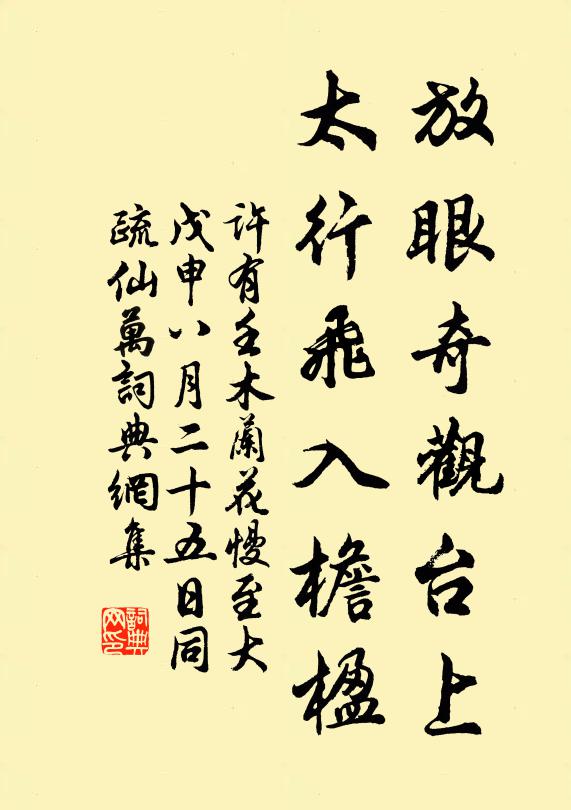 放眼奇觀台上
太行飛入檐楹
許有壬木蘭花慢至大
戊申八月二十五日同
疏仙萬詞典網集
詞典網印